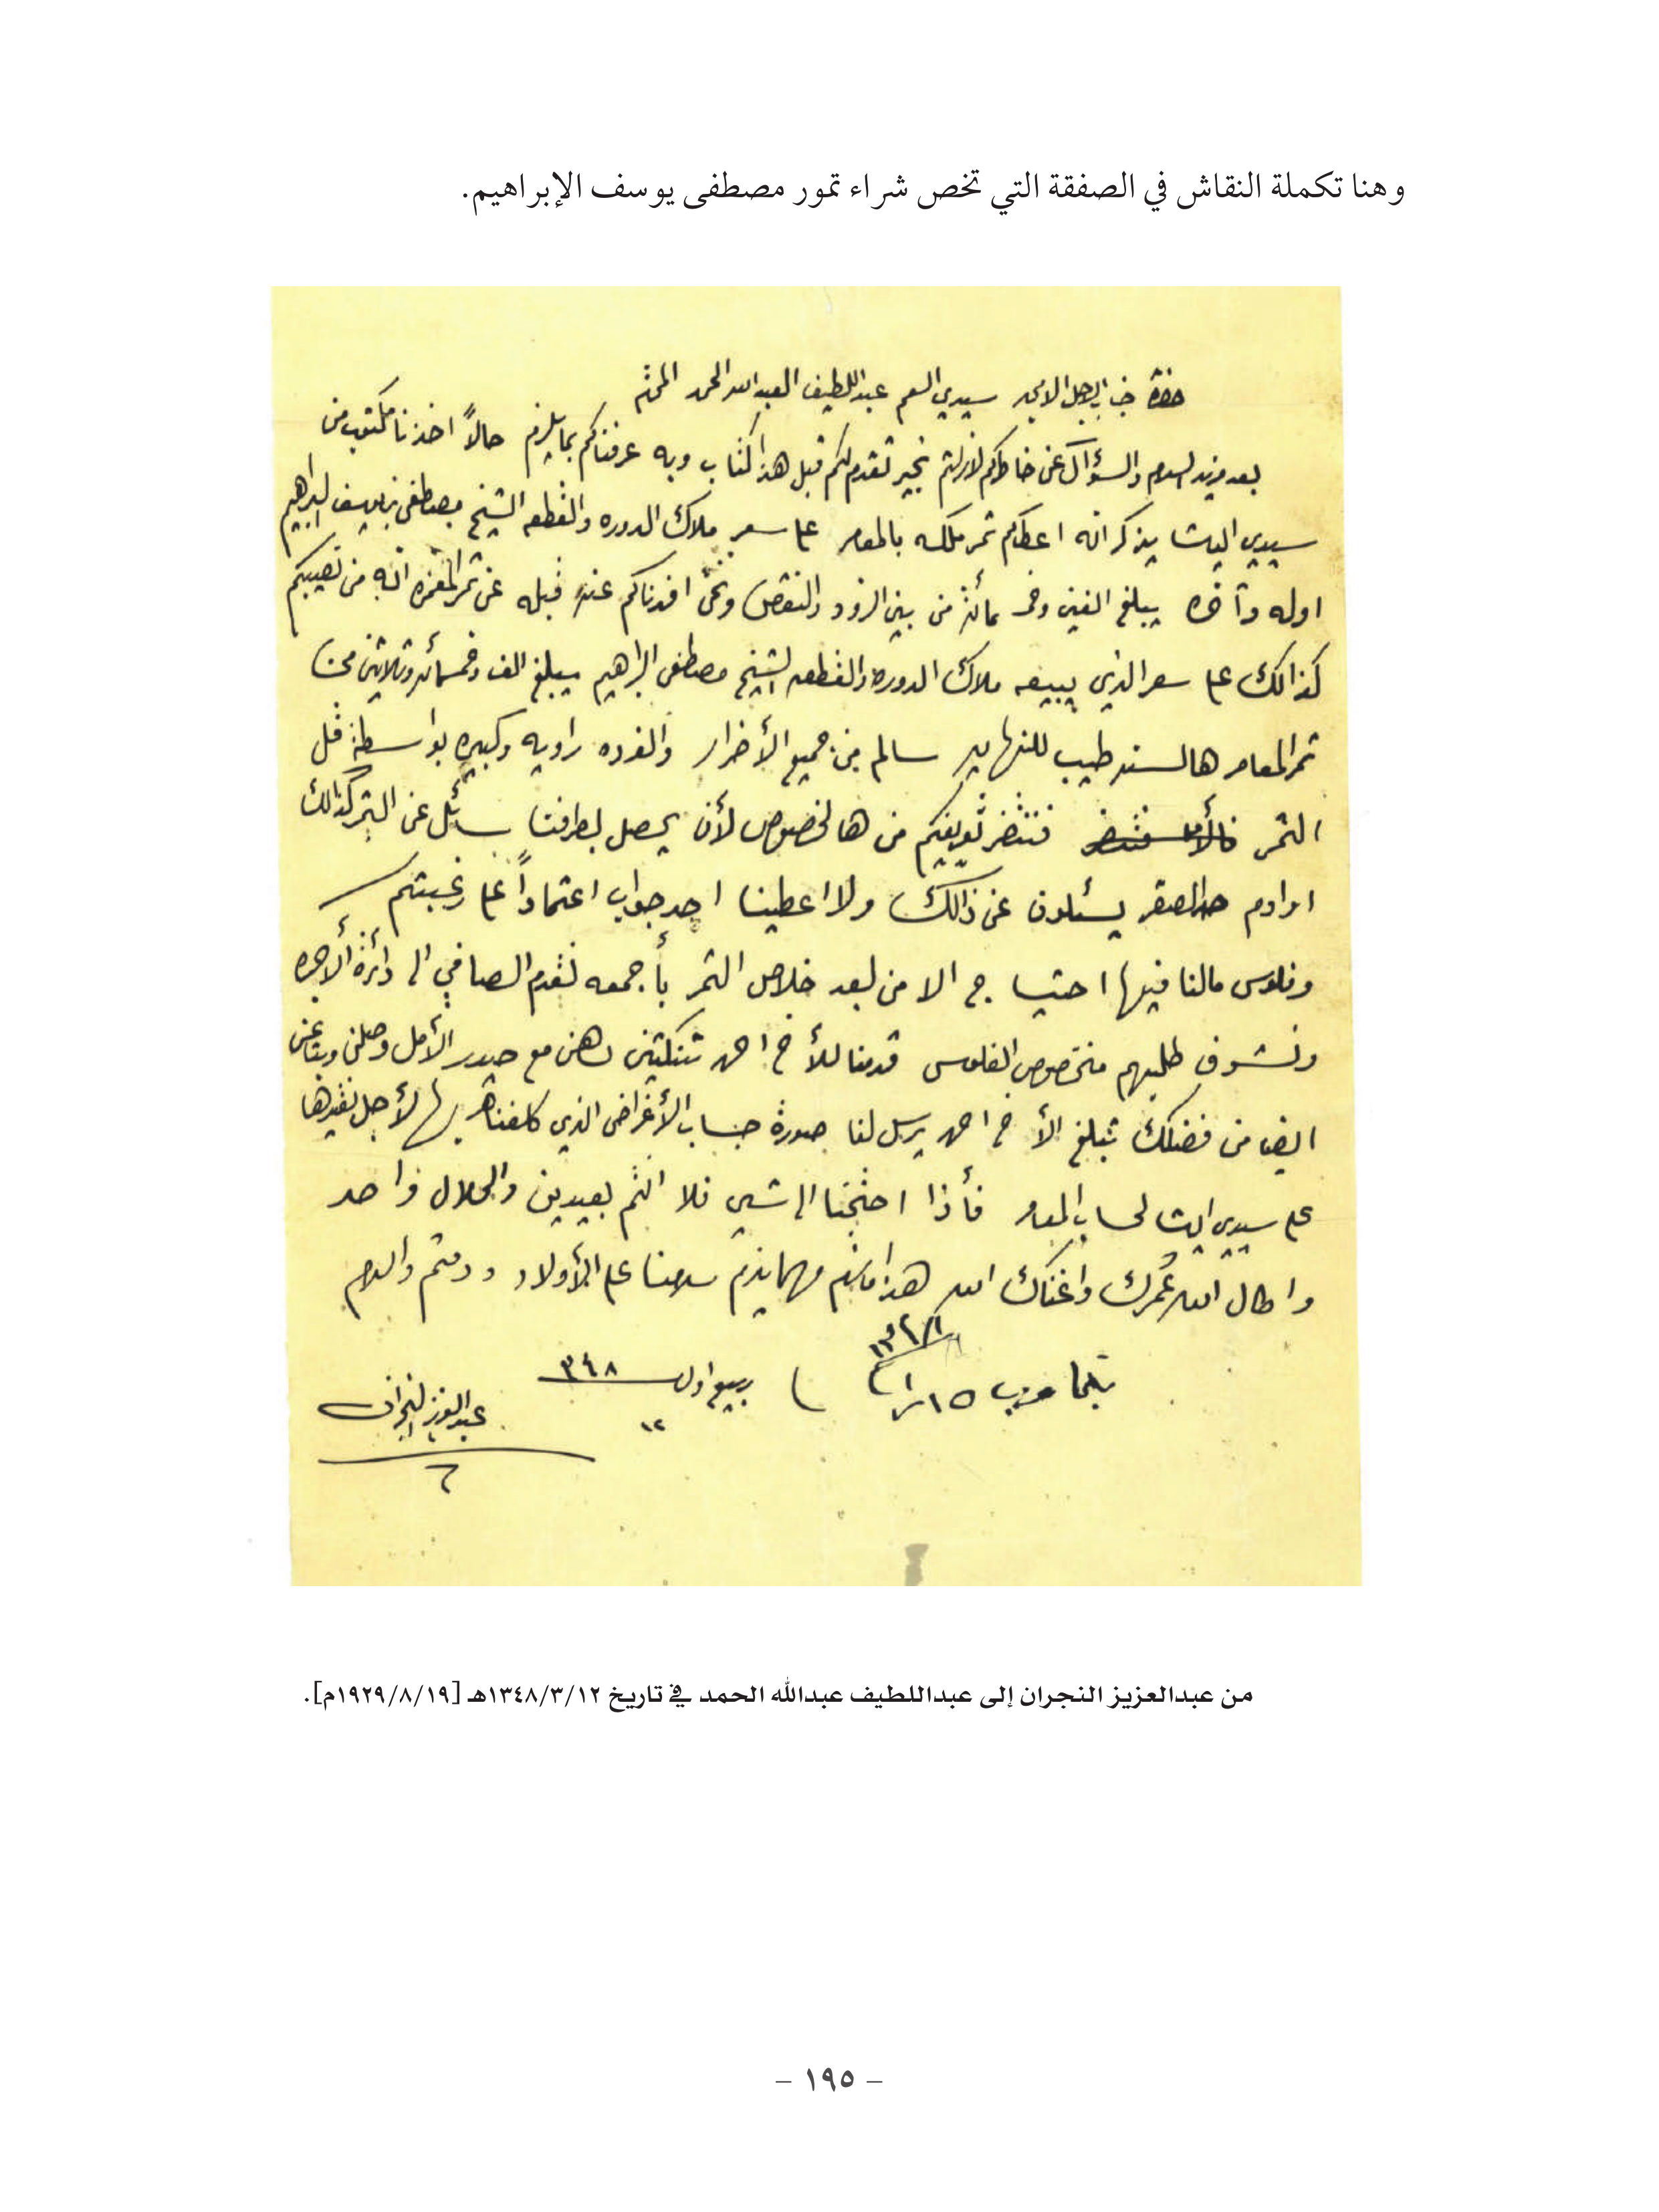 وهنا تكملة النقاش في الصفقة التي تخص شراء تمور مصطفى يوسف الإبراهيم.
حضرة جناب الاجل الامجد سيدي العم عبداللطيف العبدالله الحمد المحترم
بعد مزيد السلام والسؤآل عن خاطركم لازلتم بخير تقدم لكم قبل هذا كتاب وبه عرفناكم بما يلزم حالاً اخذنا مكتوب من
سيدي الباشا يذكر انه اعطاكم تمر ملكه بالمعامر على سعر ملاك الدوره والقطعه الشيخ مصطفى بن يوسف البراهيم
اوله وآخره يبلغ الفين وخمسمائة من بين الزود والنقص ونحن افدناكم عنه قبله عن تمر انه من نصيبكم
كذالك على سعر الذي يبيعه ملاك الدوره والقطعه الشيخ مصطفى البراهيم يبلغ الف وخمسمائه وثلاثين
تمر المعامر هالسنه طيب للنهايه سالم من جميع الأضرار والفرده راويه وكبيره بواسطة قل
التمر فنتضر تعريفكم من هالخصوص لأن يحصل بطرفنا سائل عن التمر كذالك
اوادم الصقر يسئلون عن ذالك ولا اعطينا احد جواب اعتماداً على رغبتكم
وفلوس مالنا فيها احتياج الا من بعد خلاص التمر بأجمعه نقدم الصافي الى دائرة الأجره
ونشوف طلبهم منخصوص الفلوس قدمنا للأخ احمد تنكتين دهن مع حيدر الأمل وصلني
ايضا من فضلك تبلغ الأخ احمد يرسل لنا صورة حساب الأغراض الذي كلفناه بها لأجل نقيدها
على سيدي الباشا لحساب المعامر فأذا احتجنا الى شيئ فلا انتم بعيدين والحلال واحد
واطال الله عمرك واغناك الله هذا مالزم مهما يلزم سلامنا على الأولاد ودمتم والسلام
١٥ ربيع اول ٣٤٨
١٢
عبدالعزيز النجران
من عبدالعزيز النجران إلى عبداللطيف عبدالله الحمد في تاريخ ١٣٤٨/٣/١٢هـ [١٩٢٩/٨/١٩م].
– ١٩٥ –